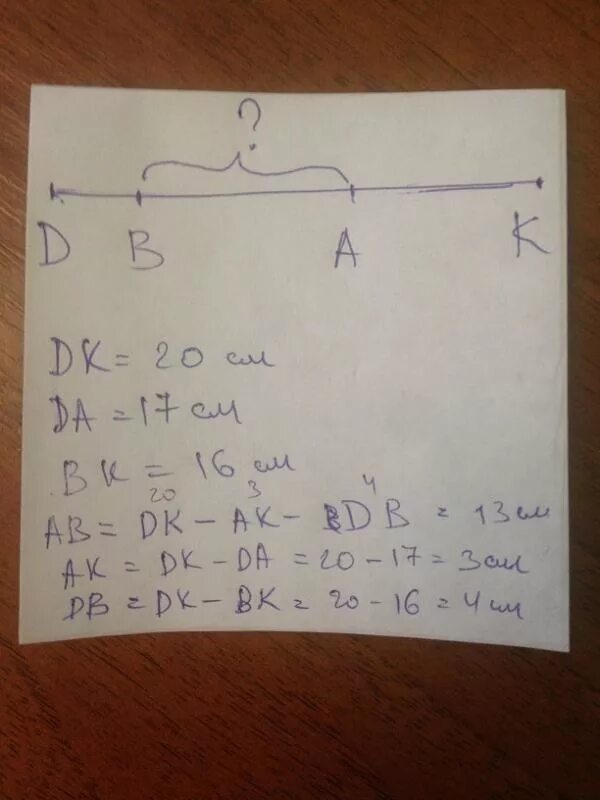 ?
D B A K
DK = 20 см
DA = 17 см
BK = 16 см
20 3 4
AB = DK - AK - DB = 13 см
AK = DK - DA = 20 - 17 = 3 см
DB = DK - BK = 20 - 16 = 4 см